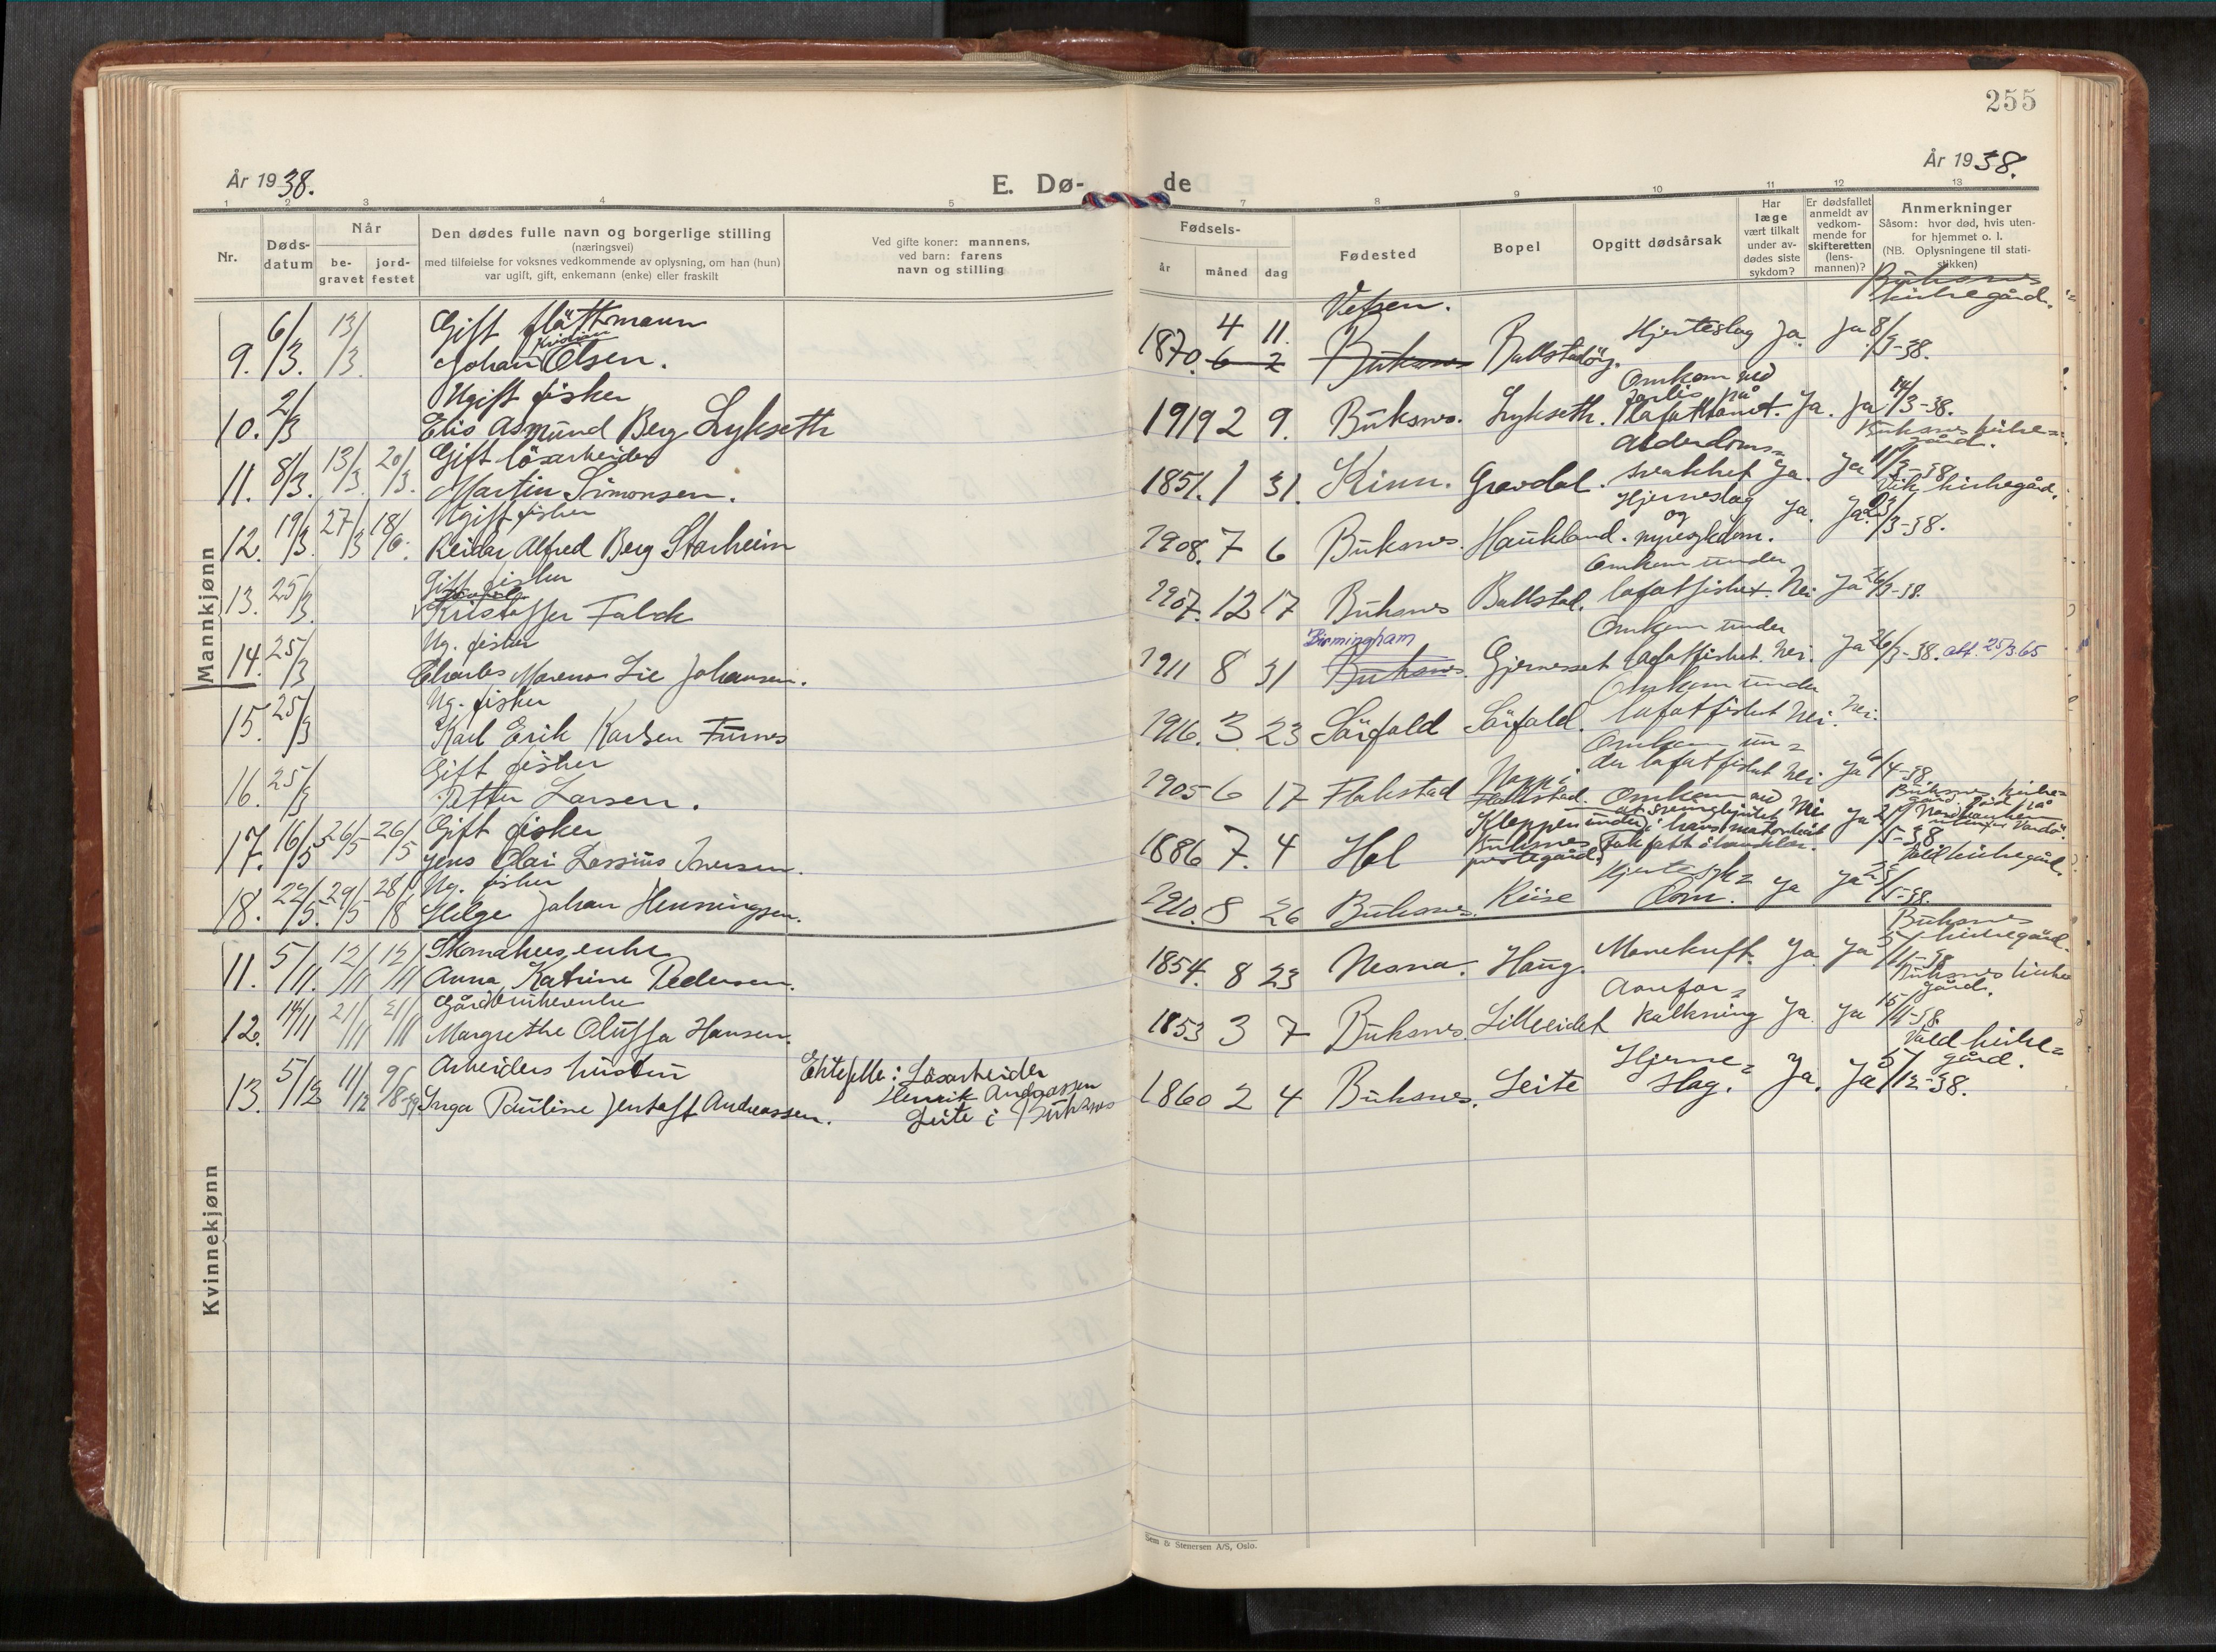 255
År 1938.
E. Dø-
de
År 1938.
1 2 3 4 5
7 8 9 10 11 12 13
Nr.
Døds-
datum
Når
be-
gravet
jord-
festet
Den dødes fulle navn og borgerlige stilling
(næringsvei)
med tilføielse for voksnes vedkommende av oplysning, om han (hun)
var ugift, gift, enkemann (enke) eller fraskilt
Ved gifte koner: mannens,
ved barn: farens
navn og stilling
Fødsels-
år måned dag
Fødested
Bopel
Opgitt dødsårsak
Har
læge
vært tilkalt
under av-
dødes siste
sykdom?
Er dødsfallet
anmeldt av
vedkom-
mende for
skifteretten
(lens-
mannen)?
Anmerkninger
Såsom: hvor død, hvis uten-
for hjemmet o. l.
(NB. Oplysningene til stati-
stikken)
Mannkjønn
Buksnes
kirkegård.
Gift flåttmann
Vefsen.
9. 6/3. 13/3. Johan Kristian Olsen. 1870. 4 11. 6 2 Buksnes Ballstadöy. Hjerteslag Ja. Ja 8/3-38.
Ugift fisker
Omkom ved
forlis på
10. 2/3 Elis Asmund Berg Lykseth 1919 2 9. Buksnes. Lykseth. lofothavet. Ja. Ja 14/3-38.
Buksnes kirke=
gård.
Gift lösarbeider
Alderdoms=
11. 8/3. 13/3. 20/3. Martin Simonsen. 1851. 1 31. Kinn. Gravdal. svakhet Ja. Ja 11/3-38
Ugift fisker
Hjerneslag
og
kirkegård.
12. 19/3. 27/3 18/6. Reidar Alfred Berg Storheim 1908. 7 6 Buksnes. Haukland. nyresykdom. Ja. Ja 23/3-38.
Gift fisker
Omkom under
13. 25/3. Kristoffer Falck 1907. 12 17 Buksnes Ballstad. lofotfisket. Nei Ja 26/3-38.
Ug. fisker
Birmingham
Omkom under
14. 25/3 Charles Marenus Lie Johansen. 1911 8 31 Buksnes. Gjerneset lofotfisket. Nei. Ja 26/3-38. att. 25/3 65
Ug. fisker
Omkom under
15. 25/3 Karl Erik Karlsen Furnes 1916. 3 23 Sörfold Sörfold. lofotfisket Nei. Nei.
Gift fisker
Omkom un=
der lofotfisket
16. 25/3 Petter Larsen. 1905 6 17 Flakstad Napp i Flakstad. Nei Ja 6/4-38.
Buksnes kirke=
gård.
Gift fisker
Omkom ved
17. 16/5 26/5 26/5 Jens Olai Lassius Iversen. 1886 7. 4 Hol Kleppen under Buksnes prestegård. Nei Ja 21/5-38
kirkegård.
Ug. fisker
Hjertesyk=
18. 22/5. 29/5 28/8 Helge Johan Henningsen. 1910. 8 26 Buksnes. Riise dom. Ja Ja 25/5-38.
Kvinnekjønn
Skomakersenke
Buksnes
kirkegård.
11. 5/11. 12/11 12/11 Anna Katrine Pedersen. 1854. 8 23 Nesna. Haug. Mavekreft. Ja. Ja 5/11-38
Buksnes kirke
gård.
Gårdbrukerenke
Aarefor=
12. 14/11 21/11 21/11 Margrethe Oluffa Hansen. 1853 3 7 Buksnes. Lilleeidet kalkning Ja. Ja 15/11-38.
kirke=
gård.
Arbeiders hustru
Ektefelle: Lösarbeider
Henrik Andreassen
Leite i Buksnes
Hjerne=
13. 5/12 11/12 9/8-39 Inga Pauline Jentoft Andreassen. 1860 2 4 Buksnes. Leite slag. Ja. Ja 5/12-38.
Sem & Stenersen A/S, Oslo.